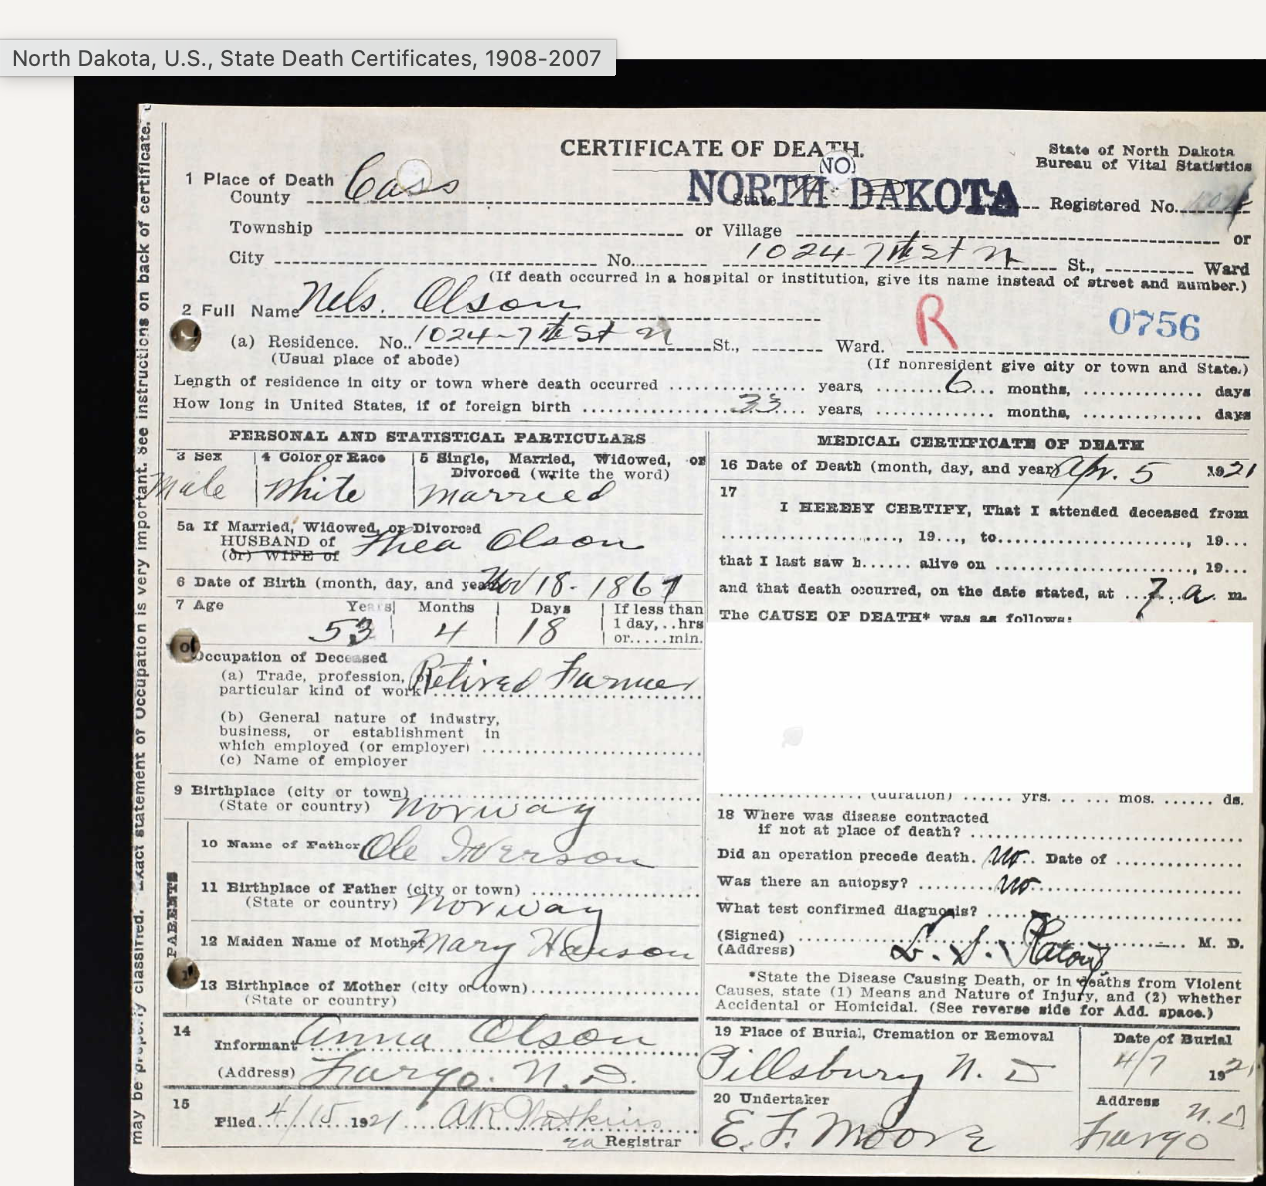 North Dakota, U.S., State Death Certificates, 1908-2007
CERTIFICATE OF DEATH.
State of North Dakota
Bureau of Vital Statistics
1 Place of Death
County Cass State NORTH DAKOTA NO. Registered No.
Township or Village or
City No. 1024-7th St N St., Ward
(If death occurred in a hospital or institution, give its name instead of street and number.)
2 Full Name Nels. Olson
R 0756
(a) Residence. No. 1024-7th St N St., Ward.
(Usual place of abode) (If nonresident give city or town and State.)
Length of residence in city or town where death occurred years, 6 months, days
How long in United States, if of foreign birth 33 years, months, days
PERSONAL AND STATISTICAL PARTICULARS
3 Sex 4 Color or Race 5 Single, Married, Widowed, or
Divorced (write the word)
Male White Married
5a If Married, Widowed, or Divorced
HUSBAND of
(or) WIFE of Thea Olson
6 Date of Birth (month, day, and year) Nov 18-1867
7 Age Years Months Days If less than
1 day, hrs
or min.
53 4 18
Occupation of Deceased
(a) Trade, profession, or
particular kind of work Retired Farmer
(b) General nature of industry,
business, or establishment in
which employed (or employer)
(c) Name of employer
9 Birthplace (city or town)
(State or country) Norway
PARENTS
10 Name of Father Ole Iverson
11 Birthplace of Father (city or town)
(State or country) Norway
12 Maiden Name of Mother Mary Hanson
13 Birthplace of Mother (city or town)
(State or country)
14
Informant Anna Olson
(Address) Fargo. N.D.
15
Filed 4/15 1921
Registrar
MEDICAL CERTIFICATE OF DEATH
16 Date of Death (month, day, and year) Apr. 5 1921
17
I HEREBY CERTIFY, That I attended deceased from
, 19..., to , 19...
that I last saw h...... alive on , 19...
and that death occurred, on the date stated, at 7 a m.
The CAUSE OF DEATH* was as follows:
(duration) yrs. mos. ds.
18 Where was disease contracted
if not at place of death?
Did an operation precede death. No. Date of
Was there an autopsy? No
What test confirmed diagnosis?
(Signed) M. D.
(Address)
*State the Disease Causing Death, or in deaths from Violent
Causes, state (1) Means and Nature of Injury, and (2) whether
Accidental or Homicidal. (See reverse side for Add. space.)
19 Place of Burial, Cremation or Removal Date of Burial
Pillsbury N. D 4/7 1921
20 Undertaker Address
E. F. Moore Fargo N.D
may be properly classified. Exact statement of Occupation is very important. See instructions on back of certificate.